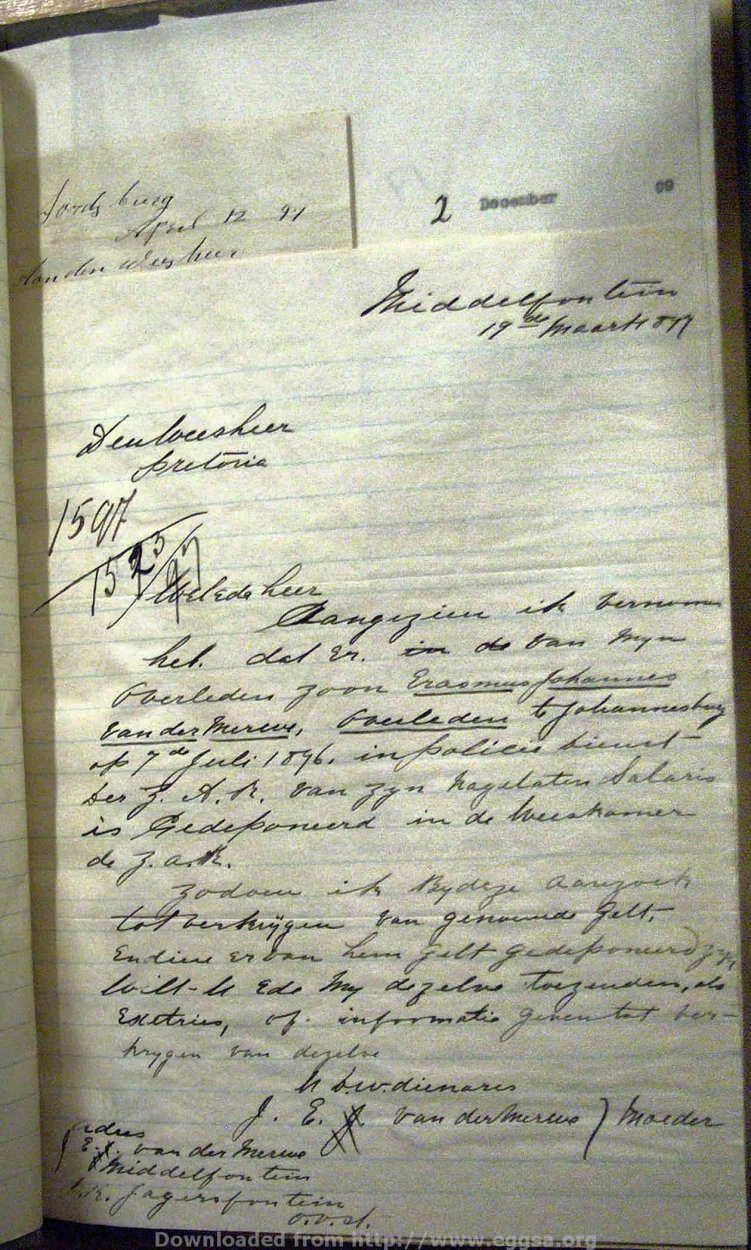 Fordsburg
April 12 97
Aan den Weesheer
2 December 99
Middelfontein
19de Maart 1897
Den Weesheer
Pretoria
1597
1523/97
WelEdeheer
Aangezien ik vernomen
heb. dat Er. in de van myn
Overleden zoon Erasmus Johannes
van der Merwe, Overleden te Johannesburg
op 7de Juli 1896. in Policie dienst
der Z. A. R. van zyn Nagelaten Salaris
is Gedeponeerd in de Weeskamer
de Z. A. R.
Zodoen ik Bydeze aanzoek
tot verkrijgen van genoemde Gelt,
Endien er van hem gelt gedeponeerd zyn
Wilt-U Ede My dezelve toezenden, als
Exetries, of informatie geven tot ver-
krygen van dezelve
U D.w. dienares
J. E. van der Merwe } Moeder
Adres
E. van der Merwe
Middelfontein
P.K. Jagersfontein
O.V.S.
Downloaded from http://www.eggsa.org